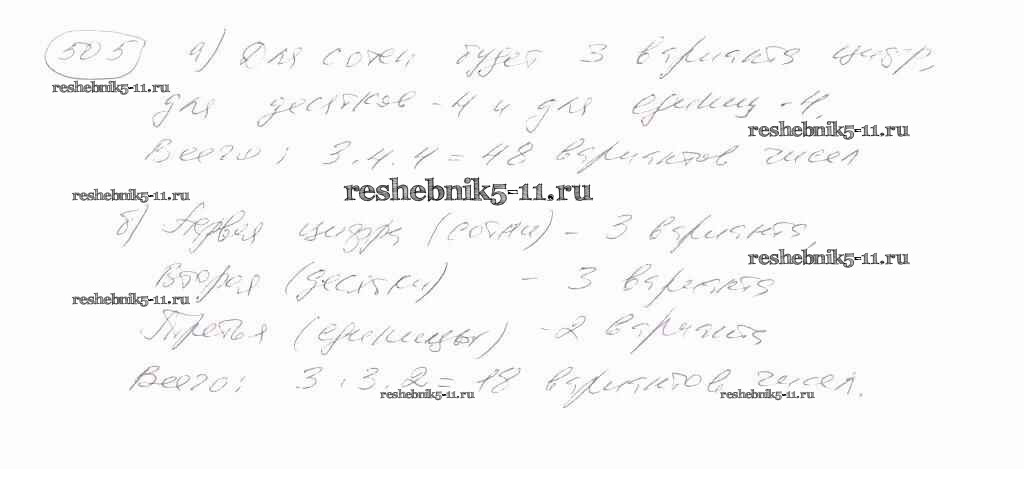 505 а) Для сотен будет 3 варианта цифр,
reshebnik5-11.ru
для десятков - 4 и для единиц - 4.
reshebnik5-11.ru
Всего: 3 · 4 · 4 = 48 вариантов чисел
reshebnik5-11.ru reshebnik5-11.ru
б) Первая цифра (сотни) - 3 варианта,
reshebnik5-11.ru
Вторая (десятки) - 3 варианта
reshebnik5-11.ru
Третья (единицы) - 2 варианта
Всего: 3 · 3 · 2 = 18 вариантов чисел.
reshebnik5-11.ru reshebnik5-11.ru